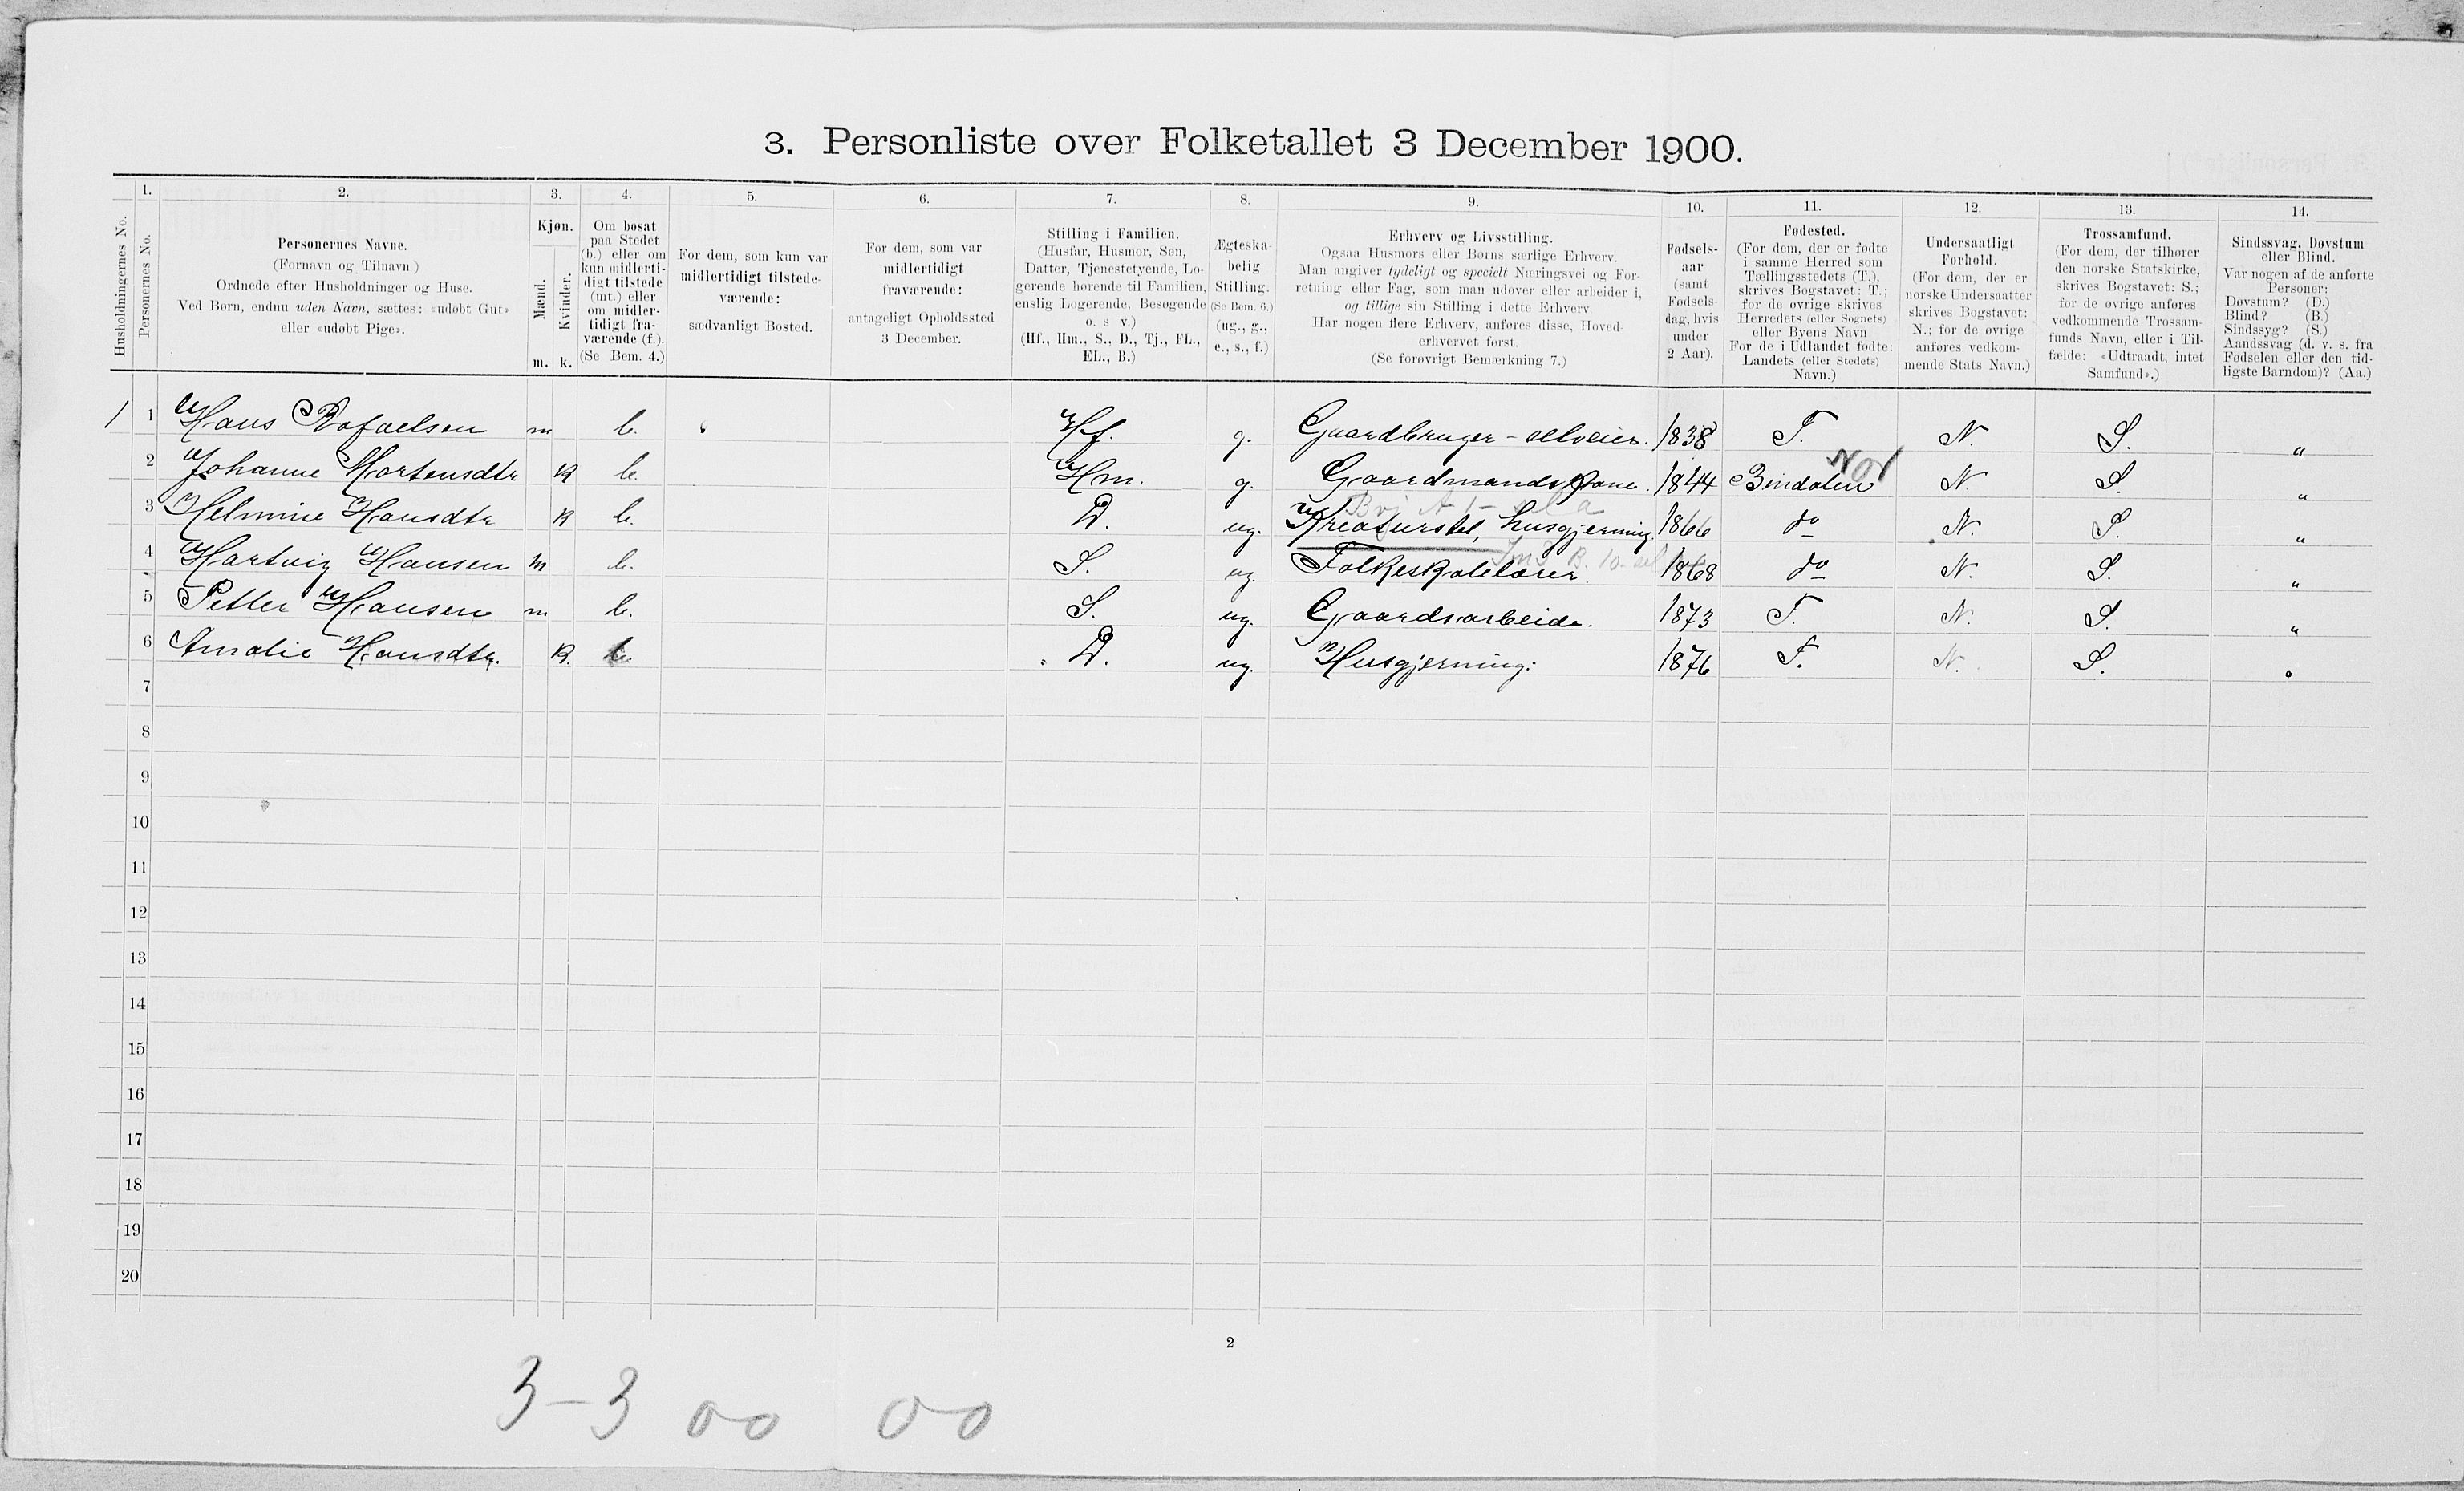 3. Personliste over Folketallet 3 December 1900.
1. 2. 3. 4. 5. 6. 7. 8. 9. 10. 11. 12. 13. 14.
Husholdningernes No.
Personernes No.
Personernes Navne.
(Fornavn og Tilnavn )
Ordnede efter Husholdninger og Huse.
Ved Børn, endnu uden Navn, sættes: «udøbt Gut»
eller «udøbt Pige».
Kjøn.
Mænd.
Kvinder.
m. k.
Om bosat
paa Stedet
(b.) eller om
kun midlerti-
digt tilstede
(mt.) eller
om midler-
tidigt fra-
værende (f.).
(Se Bem. 4.)
For dem, som kun var
midlertidigt tilstede-
værende:
sædvanligt Bosted.
For dem, som var
midlertidigt
fraværende:
antageligt Opholdssted
3 December.
Stilling i Familien.
(Husfar, Husmor, Søn,
Datter, Tjenestetyende, Lo-
gerende hørende til Familien,
enslig Logerende, Besøgende
o. s v.)
(Hf., Hm., S., D., Tj., FL.,
EL., B.)
Ægteska-
belig
Stilling.
(Se Bem. 6.)
(ug., g.,
e., s., f.)
Erhverv og Livsstilling.
Ogsaa Husmors eller Børns særlige Erhverv.
Man angiver tydeligt og specielt Næringsvei og For-
retning eller Fag, som man udøver eller arbeider i,
og tillige sin Stilling i dette Erhverv.
Har nogen flere Erhverv, anføres disse, Hoved-
erhvervet først.
(Se forøvrigt Bemærkning 7.)
Fødsels-
aar
(samt
Fødsels-
dag, hvis
under
2 Aar).
Fødested.
(For dem, der er fødte
i samme Herred som
Tællingsstedets (T.),
skrives Bogstavet: T.;
for de øvrige skrives
Herredets (eller Sognets)
eller Byens Navn
For de i Udlandet fødte:
Landets (eller Stedets)
Navn.)
Undersaatligt
Forhold.
(For dem, der er
norske Undersaatter
skrives Bogstavet:
N.; for de øvrige
anføres vedkom-
mende Stats Navn.)
Trossamfund.
(For dem, der tilhører
den norske Statskirke,
skrives Bogstavet: S.;
for de øvrige anføres
vedkommende Trossam-
funds Navn, eller i Til-
fælde: «Udtraadt, intet
Samfund».)
Sindssvag, Døvstum
eller Blind.
Var nogen af de anførte
Personer:
Døvstum? (D.)
Blind? (B.)
Sindssyg? (S.)
Aandssvag (d. v. s. fra
Fødselen eller den tid-
ligste Barndom)? (Aa.)
1 1 Hans Rafaelsen m b. Hf. g. Gaardbruger - selveier. 1838 T. N. S. "
2 Johanne Mortensdtr k b. Hm. g. Gaardmandskone. 1844 Bindalen N S. "
3 Helmine Hansdtr k b. D. ug. Kreaturstel, husgjerning. 1866 do N. S. "
4 Hartvig Hansen m b. S. ug. Folkeskolelærer. 1868 do N. S. "
5 Petter Hansen m b. S. ug. Gaardsarbeide. 1873 T. N. S. "
6 Amalie Hansdtr. k. b. D. ug. Husgjerning. 1876 T. N. S. "
7
8
9
10
11
12
13
14
15
16
17
18
19
20
2
3-3 00 00